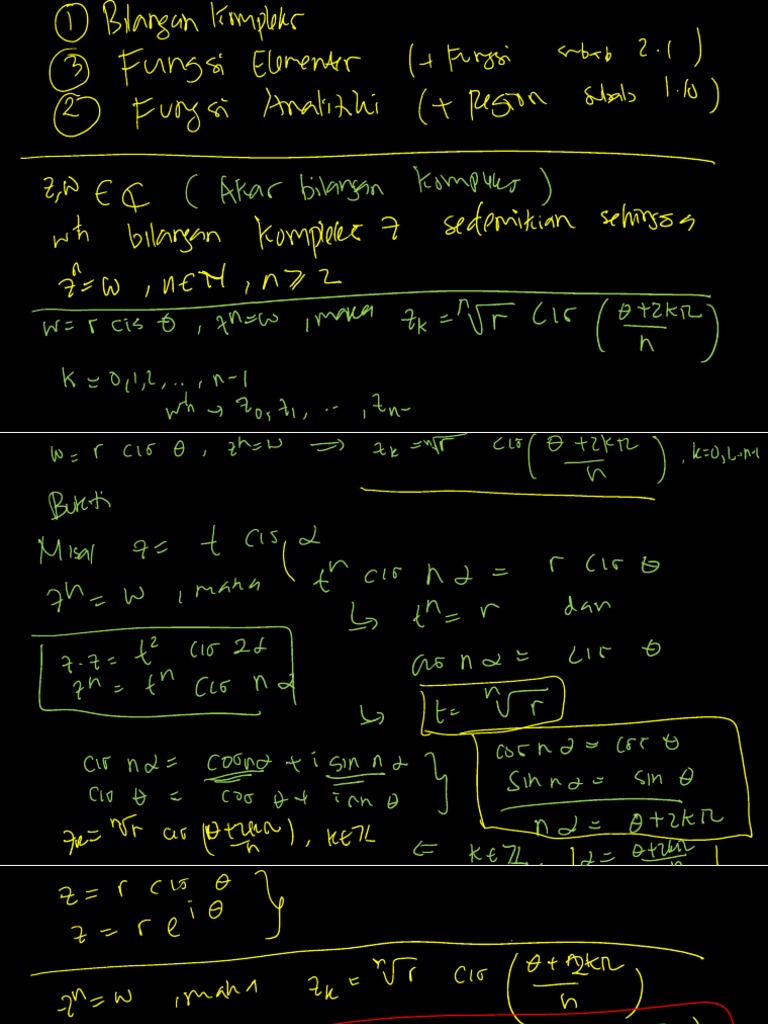 ① Bilangan Kompleks
③ Fungsi Elementer (+ Fungsi subbab 2.1)
② Fungsi Analitik (+ Region subbab 1.10)
z, w ∈ ℂ (Akar bilangan kompleks)
bilangan kompleks z sedemikian sehingga
zⁿ = w, n ∈ ℕ, n ≥ 2
w = r cis θ, zⁿ = w, maka z_k = ⁿ√r cis (θ + 2kπ / n)
k = 0, 1, 2, ..., n-1
→ z₀, z₁, ..., zₙ₋
w = r cis θ, zⁿ = w ⟹ z_k = ⁿ√r cis (θ + 2kπ / n), k = 0, 1, .. n-1
Bukti
Misal z = t cis α
zⁿ = w, maka tⁿ cis n α = r cis θ
↳ tⁿ = r dan
z·z = t² cis 2α
zⁿ = tⁿ cis n α
cis n α = cis θ
↳ t = ⁿ√r
cis nα = cos nα + i sin n α
cis θ = cos θ + i sin θ
cos n α = cos θ
sin n α = sin θ
n α = θ + 2kπ
z_k = ⁿ√r cis (θ + 2kπ / n), k ∈ ℤ
⇐ k ∈ ℤ, α = θ + 2kπ
z = r cis θ
z = r e^{iθ}
zⁿ = w, maka z_k = ⁿ√r cis (θ + 2kπ / n)